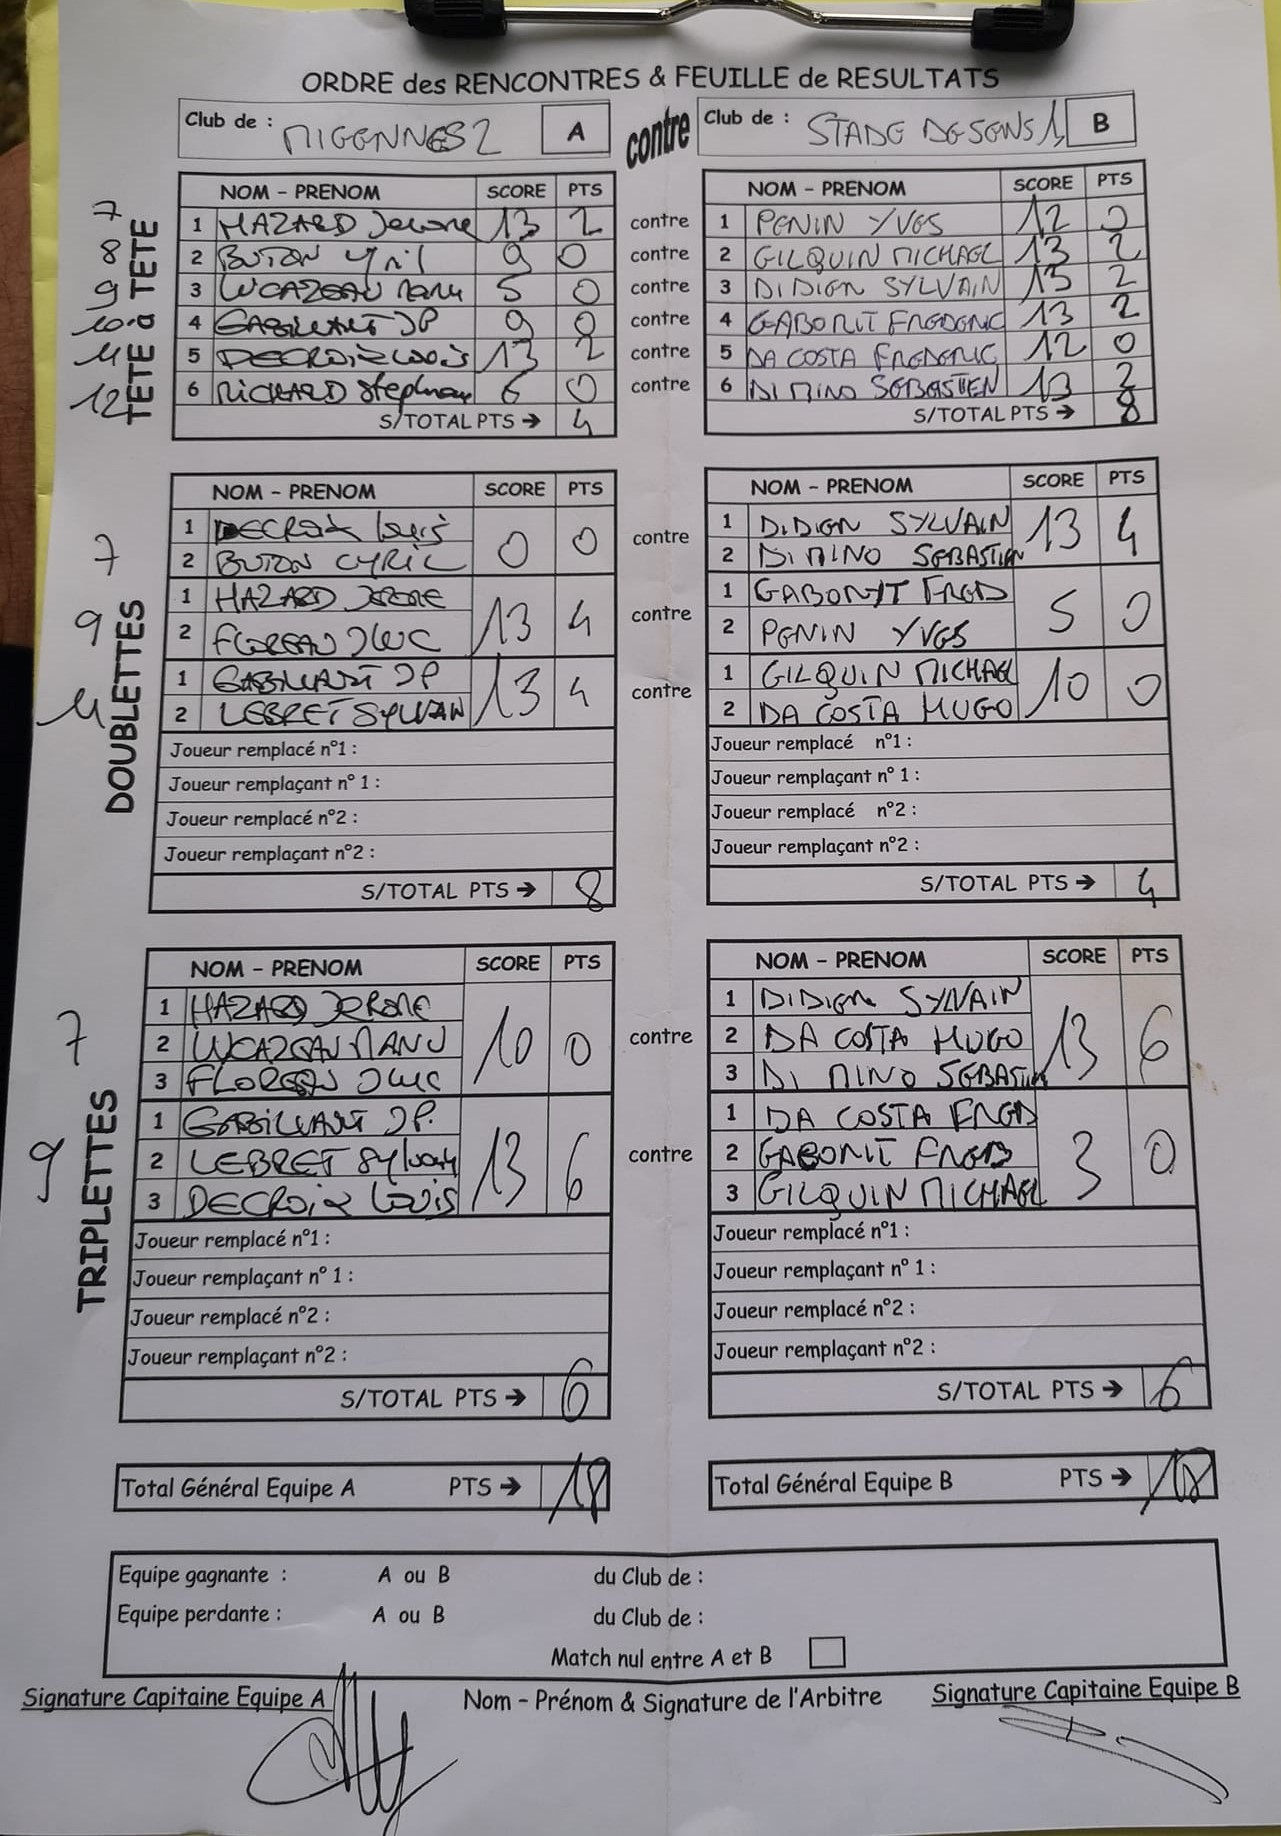 ORDRE des RENCONTRES & FEUILLE de RESULTATS
Club de : MIGENNES 2 A contre Club de : STADE DE SENS 1 B
TETE à TETE
NOM - PRENOM SCORE PTS NOM - PRENOM SCORE PTS
7 1 HAZARD Jerome 13 2 contre 1 PENIN YVES 12 0
8 2 BUTON Cyril 9 0 contre 2 GILQUIN MICHAEL 13 2
9 3 LUCAZEAU Manu 5 0 contre 3 DIDIGN SYLVAIN 13 2
10 4 GABILLANT JP 9 0 contre 4 GABORIT FREDERIC 13 2
11 5 DECROIX Louis 13 2 contre 5 DA COSTA FREDERIC 12 0
12 6 RICHARD Stephane 6 0 contre 6 DI MINO SEBASTIEN 13 2
S/TOTAL PTS → 4 S/TOTAL PTS → 8
DOUBLETTES
NOM - PRENOM SCORE PTS NOM - PRENOM SCORE PTS
7 1 DECROIX Louis 0 0 contre 1 DIDIGN SYLVAIN 13 4
2 BUTON CYRIL 2 DI MINO SEBASTIEN
9 1 HAZARD JEROME 13 4 contre 1 GABORIT FRED 5 0
2 FLOREAU JLUC 2 PENIN YVES
11 1 GABILLANT JP 13 4 contre 1 GILQUIN MICHAEL 10 0
2 LEBRET SYLVAIN 2 DA COSTA HUGO
Joueur remplacé n°1 : Joueur remplacé n°1 :
Joueur remplaçant n° 1 : Joueur remplaçant n° 1 :
Joueur remplacé n°2 : Joueur remplacé n°2 :
Joueur remplaçant n°2 : Joueur remplaçant n°2 :
S/TOTAL PTS → 8 S/TOTAL PTS → 4
TRIPLETTES
NOM - PRENOM SCORE PTS NOM - PRENOM SCORE PTS
1 HAZARD JEROME 1 DIDIGN SYLVAIN
7 2 LUCAZEAU MANU 10 0 contre 2 DA COSTA HUGO 13 6
3 FLOREAU JLUC 3 DI MINO SEBASTIEN
1 GABILLANT JP. 1 DA COSTA FRED
9 2 LEBRET Sylvain 13 6 contre 2 GABORIT FRED 3 0
3 DECROIX Louis 3 GILQUIN MICHAEL
Joueur remplacé n°1 : Joueur remplacé n°1 :
Joueur remplaçant n° 1 : Joueur remplaçant n° 1 :
Joueur remplacé n°2 : Joueur remplacé n°2 :
Joueur remplaçant n°2 : Joueur remplaçant n°2 :
S/TOTAL PTS → 6 S/TOTAL PTS → 6
Total Général Equipe A PTS → 18 Total Général Equipe B PTS → 18
Equipe gagnante : A ou B du Club de :
Equipe perdante : A ou B du Club de :
Match nul entre A et B
Signature Capitaine Equipe A Nom - Prénom & Signature de l'Arbitre Signature Capitaine Equipe B